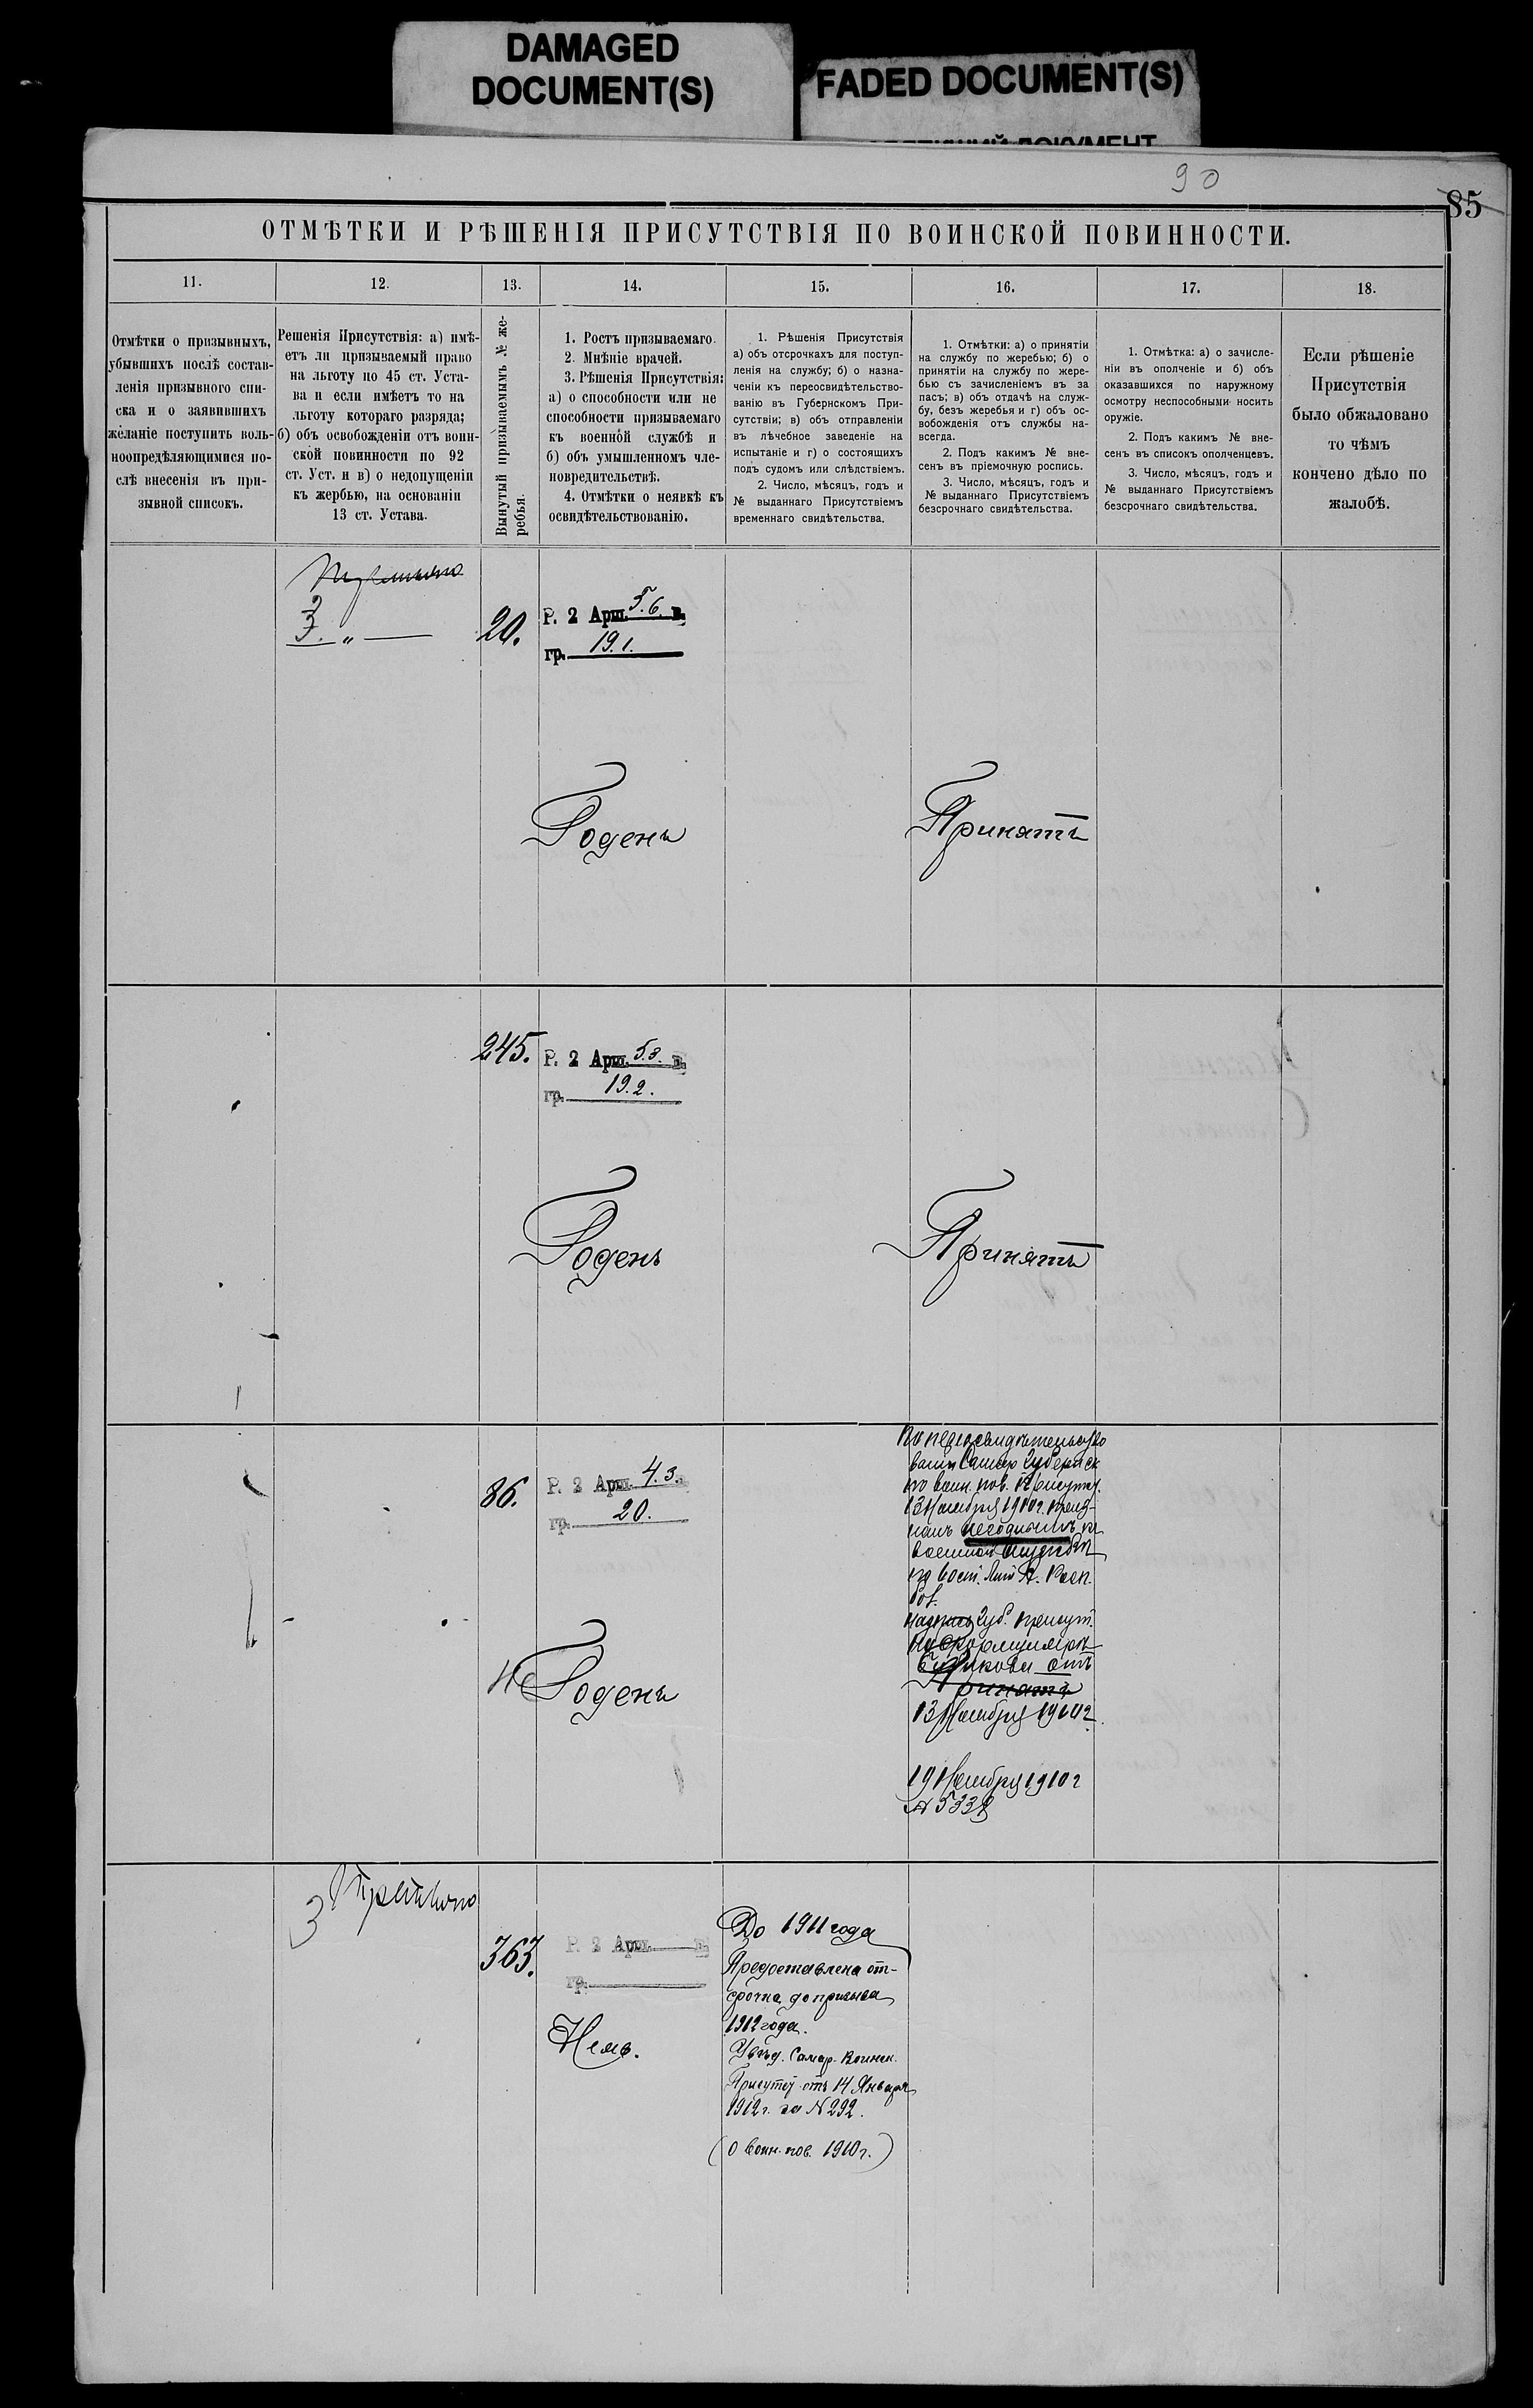 DAMAGED
DOCUMENT(S)
FADED DOCUMENT(S)
90
85
ОТМѢТКИ И РѢШЕНІЯ ПРИСУТСТВІЯ ПО ВОИНСКОЙ ПОВИННОСТИ.
11.
12.
13.
14.
15.
16.
17.
18.
Отмѣтки о призывныхъ,
убывшихъ послѣ состав-
ленія призывного спи-
ска и о заявившихъ
желаніе поступить воль-
ноопредѣляющимися по-
слѣ внесенія въ при-
зывной списокъ.
Решенія Присутствія: а) имѣ-
етъ ли призываемый право
на льготу по 45 ст. Уста-
ва и если имѣетъ то на
льготу котораго разряда;
б) объ освобожденіи отъ воин-
ской повинности по 92
ст. Уст. и в) о недопущеніи
къ жербью, на основаніи
13 ст. Устава.
Вынутый призываемымъ № же-
ребья.
1. Ростъ призываемаго.
2. Мнѣніе врачей.
3. Рѣшенія Присутствія:
а) о способности или не
способности призываемаго
къ военной службѣ и
б) объ умышленномъ чле-
новредительствѣ.
4. Отмѣтки о неявкѣ къ
освидѣтельствованію.
1. Рѣшенія Присутствія
а) объ отсрочкахъ для поступ-
ленія на службу; б) о назна-
ченіи къ переосвидѣтельство-
ванію въ Губернскомъ При-
сутствіи; в) объ отправленіи
въ лѣчебное заведеніе на
испытаніе и г) о состоящихъ
подъ судомъ или слѣдствіемъ.
2. Число, мѣсяцъ, годъ и
№ выданнаго Присутствіемъ
временнаго свидѣтельства.
1. Отмѣтки: а) о принятіи
на службу по жеребью; б) о
принятіи на службу по жере-
бью съ зачисленіемъ въ за
пасъ; в) объ отдачѣ на служ-
бу, безъ жеребья и г) объ ос-
вобожденія отъ службы на-
всегда.
2. Подъ какимъ № вне-
сенъ въ пріемочную роспись.
3. Число, мѣсяцъ, годъ и
№ выданнаго Присутствіемъ
безсрочнаго свидѣтельства.
1. Отмѣтка: а) о зачисле-
ніи въ ополченіе и б) объ
оказавшихся по наружному
осмотру неспособными носить
оружіе.
2. Подъ какимъ № вне-
сенъ въ списокъ ополченцевъ.
3. Число, мѣсяцъ, годъ и
№ выданнаго Присутствіемъ
безсрочнаго свидѣтельства.
Если рѣшеніе
Присутствія
было обжаловано
то чѣмъ
кончено дѣло по
жалобѣ.
3. „ —
20.
Р. 2 Арш. 5.6. в.
гр. 19.1.
Годенъ
Принятъ
245.
Р. 2 Арш. 5.3. в.
гр. 19.2.
Годенъ
Принятъ
86.
Р. 2 Арш. 4.3. в.
гр. 20.
Не Годенъ
По переосвидѣтельство
ваніи Самар Губернск
по воин. пов. Присутст.
13 Ноября 1910г. приз-
нанъ негоднымъ къ
военной службѣ
Губ. Присут.
отъ
Принятъ
13 Ноября 1910г.
19 Ноября 1910г
№ 533
3 Третьяго
363.
Р. 2 Арш. в.
гр.
Неяв.
До 1911 года
Предоставлена от-
срочка до призыва
1912 года.
Увѣд. Самар. Воинск.
Присутст. отъ 14 Января
1912 г. за № 292.
(О воин. пов. 1910 г.)